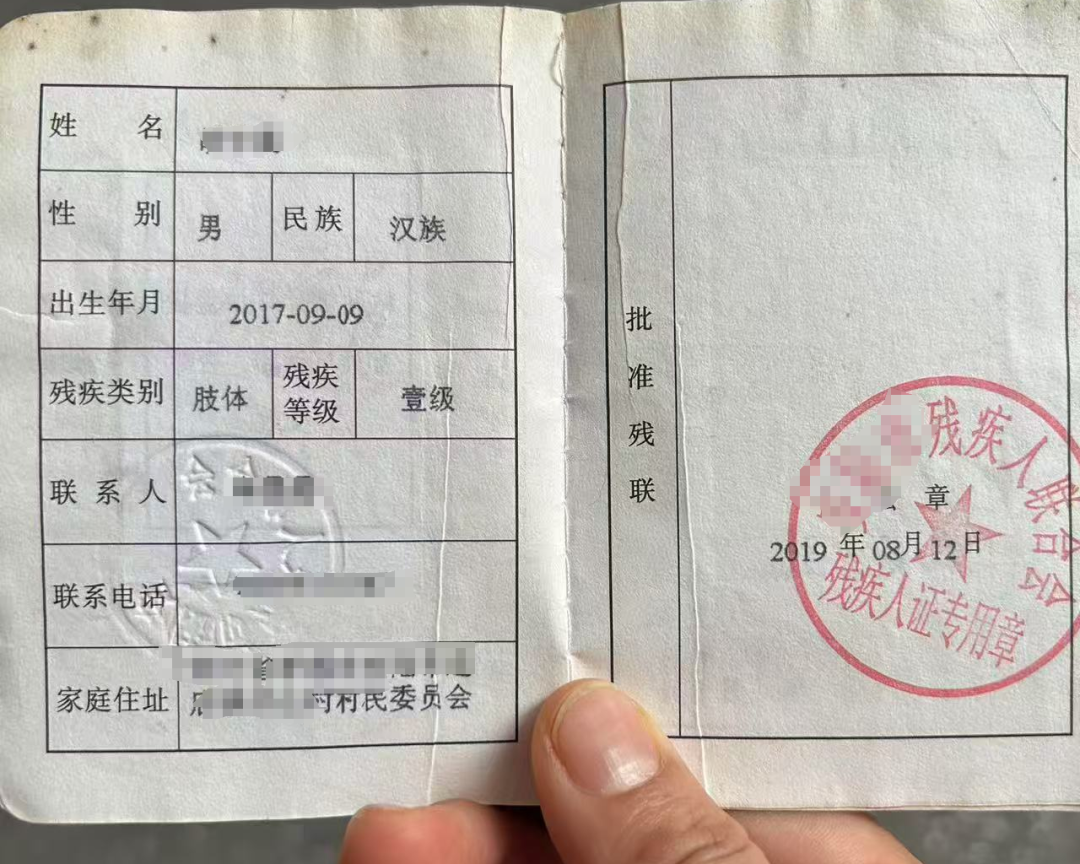 姓 名
性 别 男 民族 汉族
出生年月 2017-09-09
残疾类别 肢体 残疾等级 壹级
联系人
联系电话
家庭住址
村村民委员会
批准残联
残疾人联合会
章
2019 年 08月 12日
残疾人证专用章